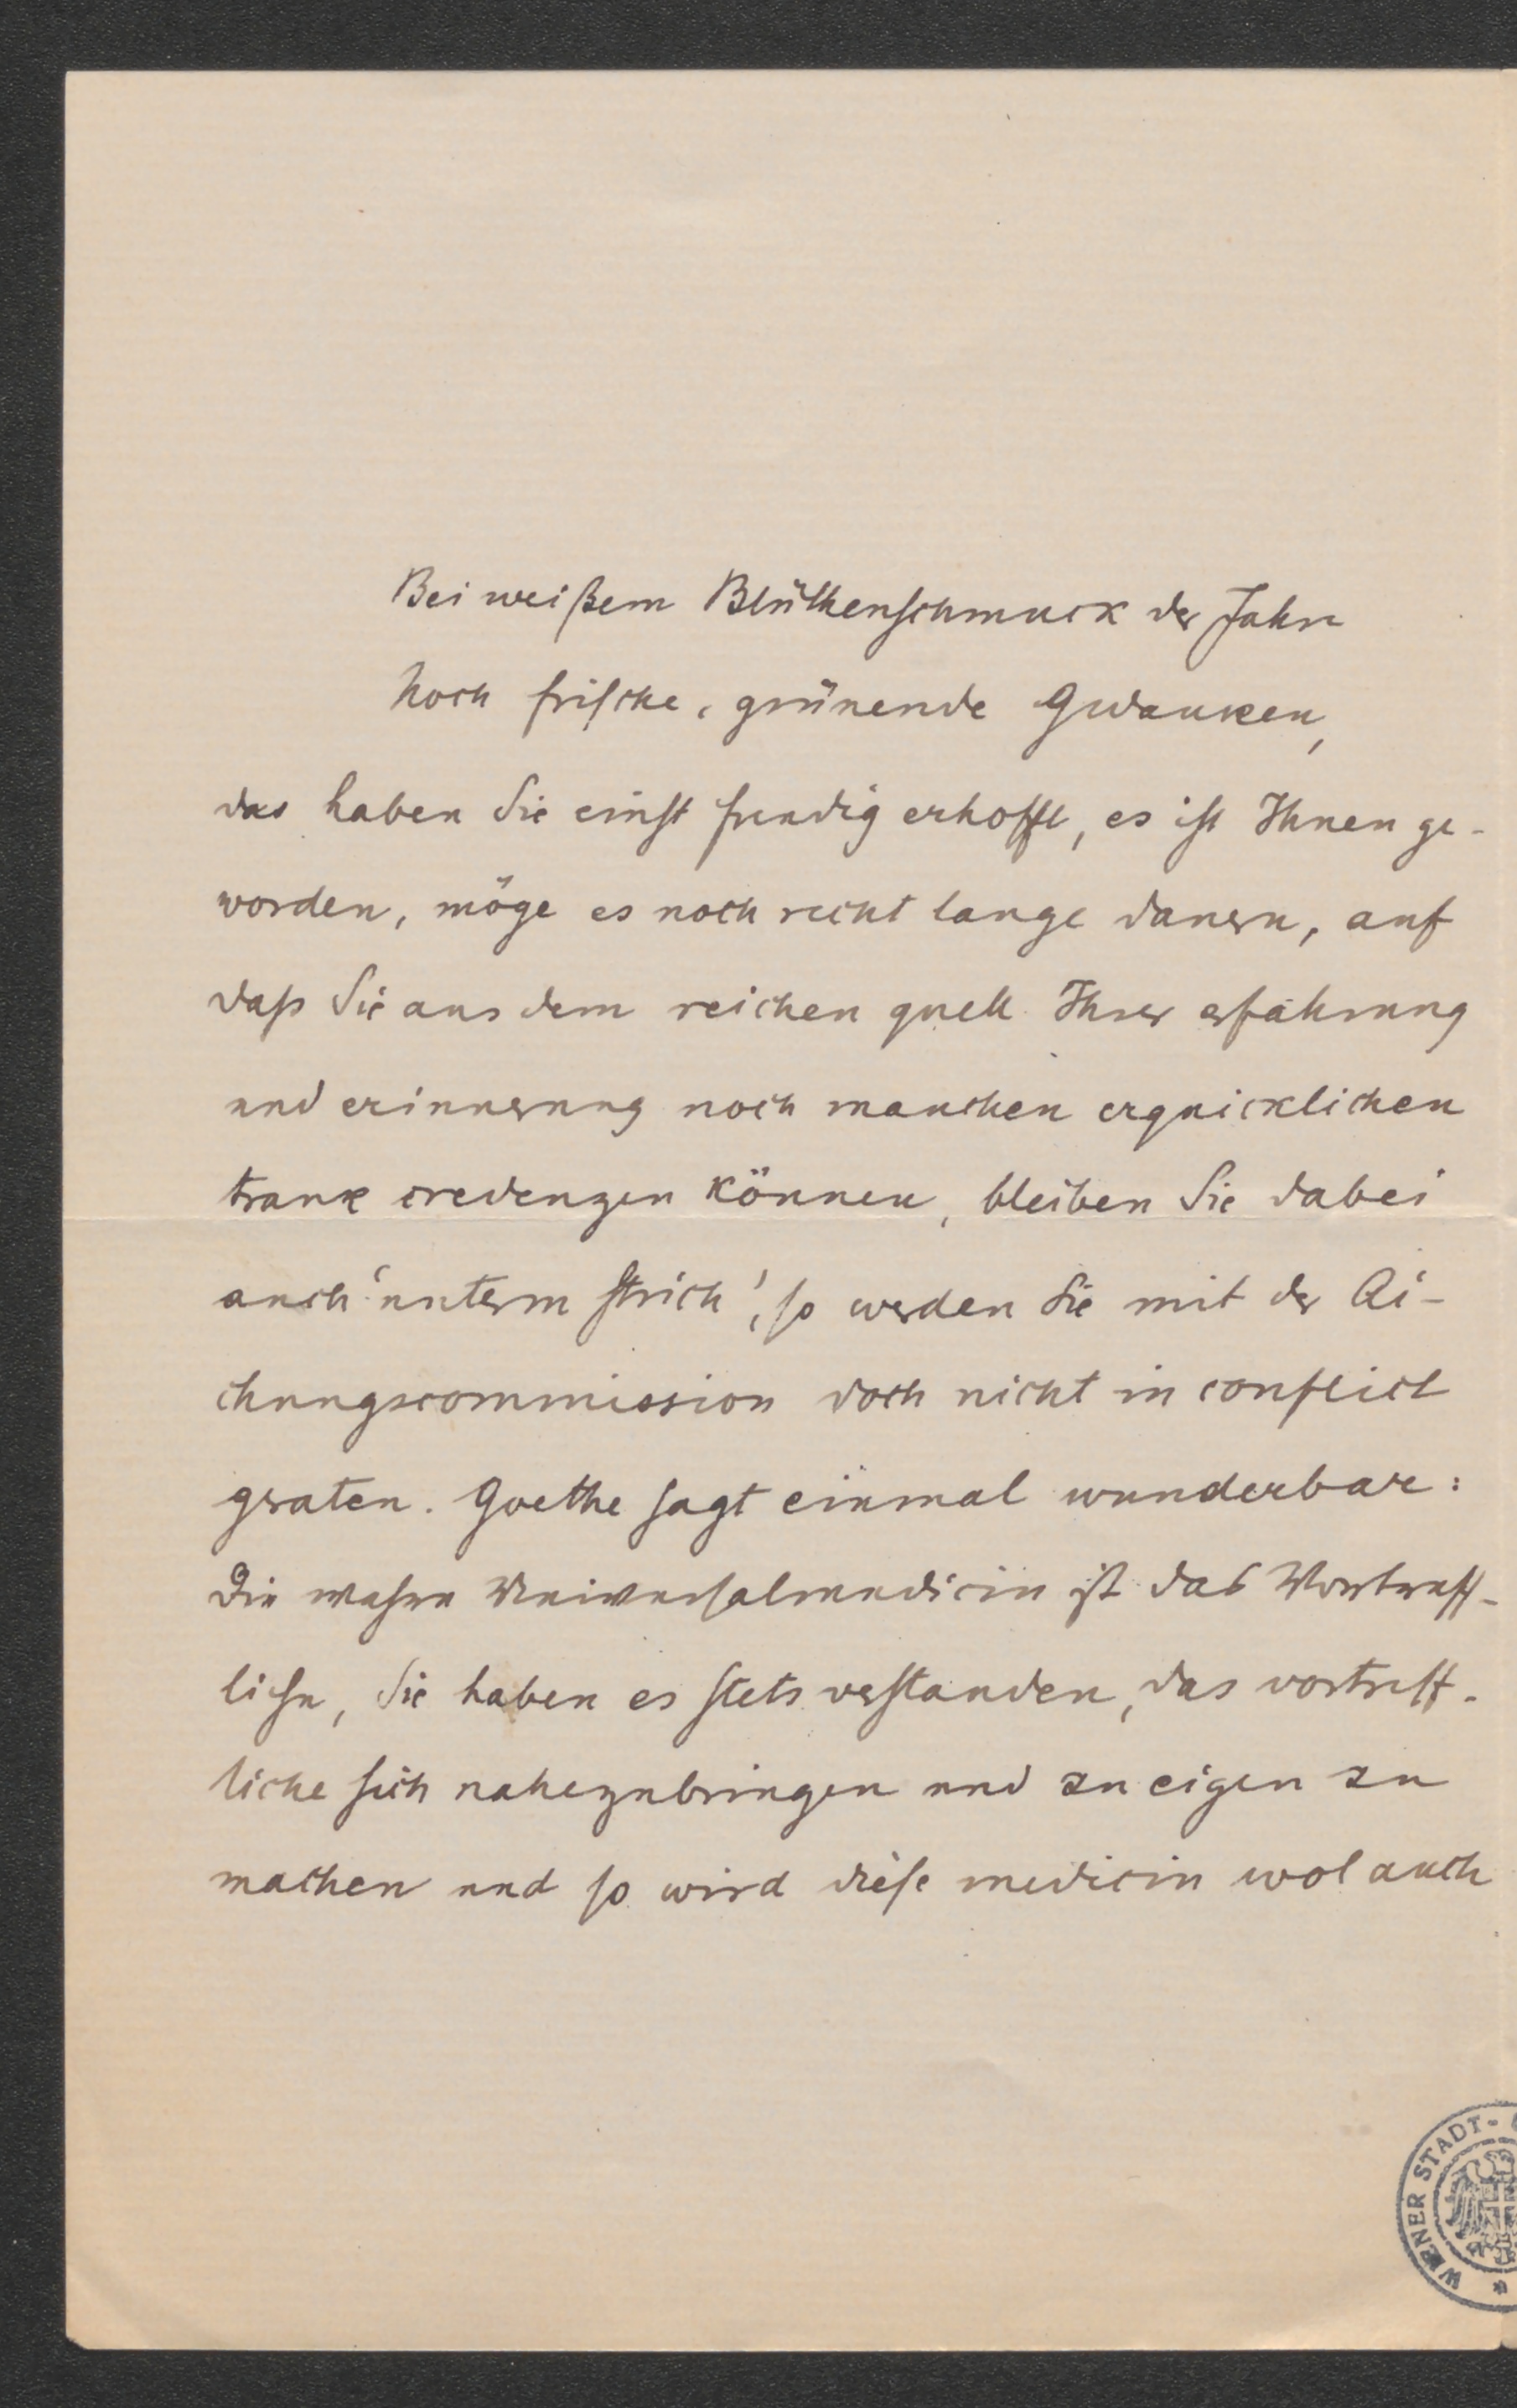 Bei weißem Blüthenschmuck der Jahre
Noch frische, grünende Gedanken,
das haben Sie einst freudig erhofft, es ist Ihnen ge-
worden, möge es noch recht lange dauern, auf
daß Sie aus dem reichen quell Ihrer erfahrung
und erinnerung noch manchen erquicklichen
trank credenzen können, bleiben Sie dabei
auch 'unterm strich', so werden Sie mit der Ai-
chungscommission doch nicht in conflict
geraten. Goethe sagt einmal wunderbar:
Die wahre Universalmedicin ist das Vortreff-
liche, Sie haben es stets verstanden, das vortreff-
liche sich nahezubringen und zu eigen zu
machen und so wird diese medicin wol auch
WIENER STADT-